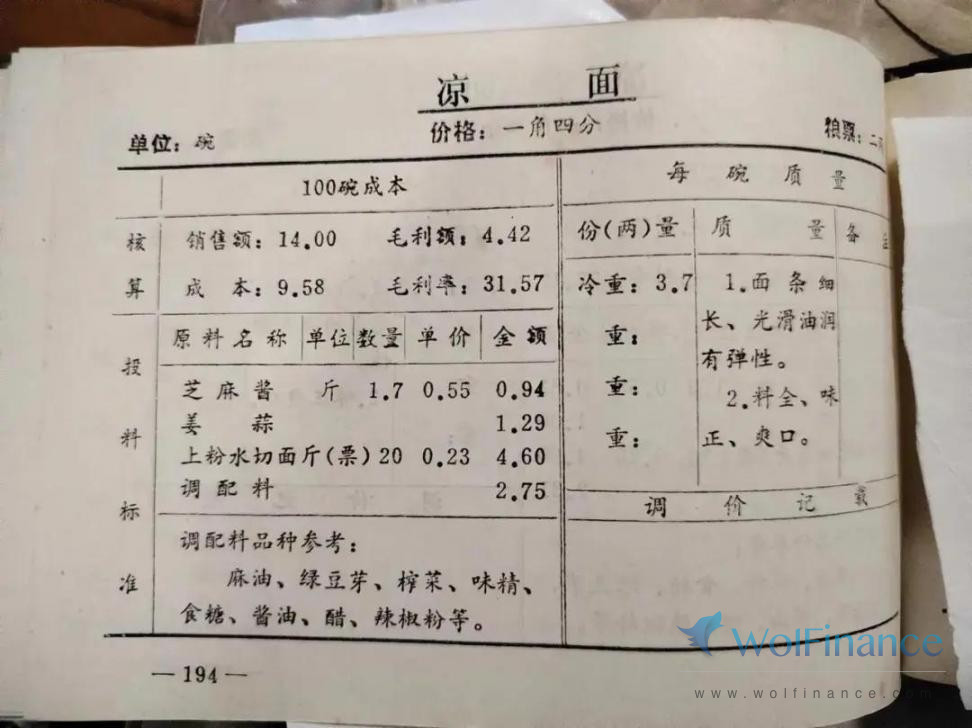 凉 面
单位：碗 价格：一角四分 粮票：二
100碗成本
核 销售额：14.00 毛利额：4.42
算 成 本：9.58 毛利率：31.57
投 原料名称 单位 数量 单价 金额
芝麻酱 斤 1.7 0.55 0.94
姜 蒜 1.29
料 上粉水切面 斤(票) 20 0.23 4.60
调配料 2.75
标
调配料品种参考：
准 麻油、绿豆芽、榨菜、味精、
食糖、酱油、醋、辣椒粉等。
每 碗 质 量
份(两)量 质 量 备
冷重：3.7 1.面条细
重： 长、光滑油润
有弹性。
重： 2.料全、味
重： 正、爽口。
调 价 记 载
—194—
WolFinance
www.wolfinance.com